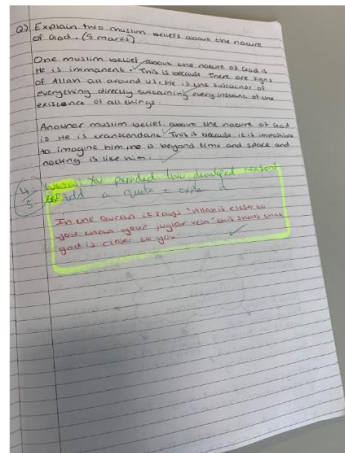 Q) Explain two muslim beliefs about the nature
of God. (5 marks)
One muslim belief about the nature of God is
He is immanent. This is because there are signs
of Allah all around us. He is the sustainer of
everything directly sustaining every instant of the
existence of all things.
Another muslim belief about the nature of God
is He is transcendant. This is because it is impossible
to imagine him, he is beyond time and space and
nothing is like him.
4
5
two developed
add a quote =
In the Quran it says
you than your juglar vein" this shows that
god is closer to you.